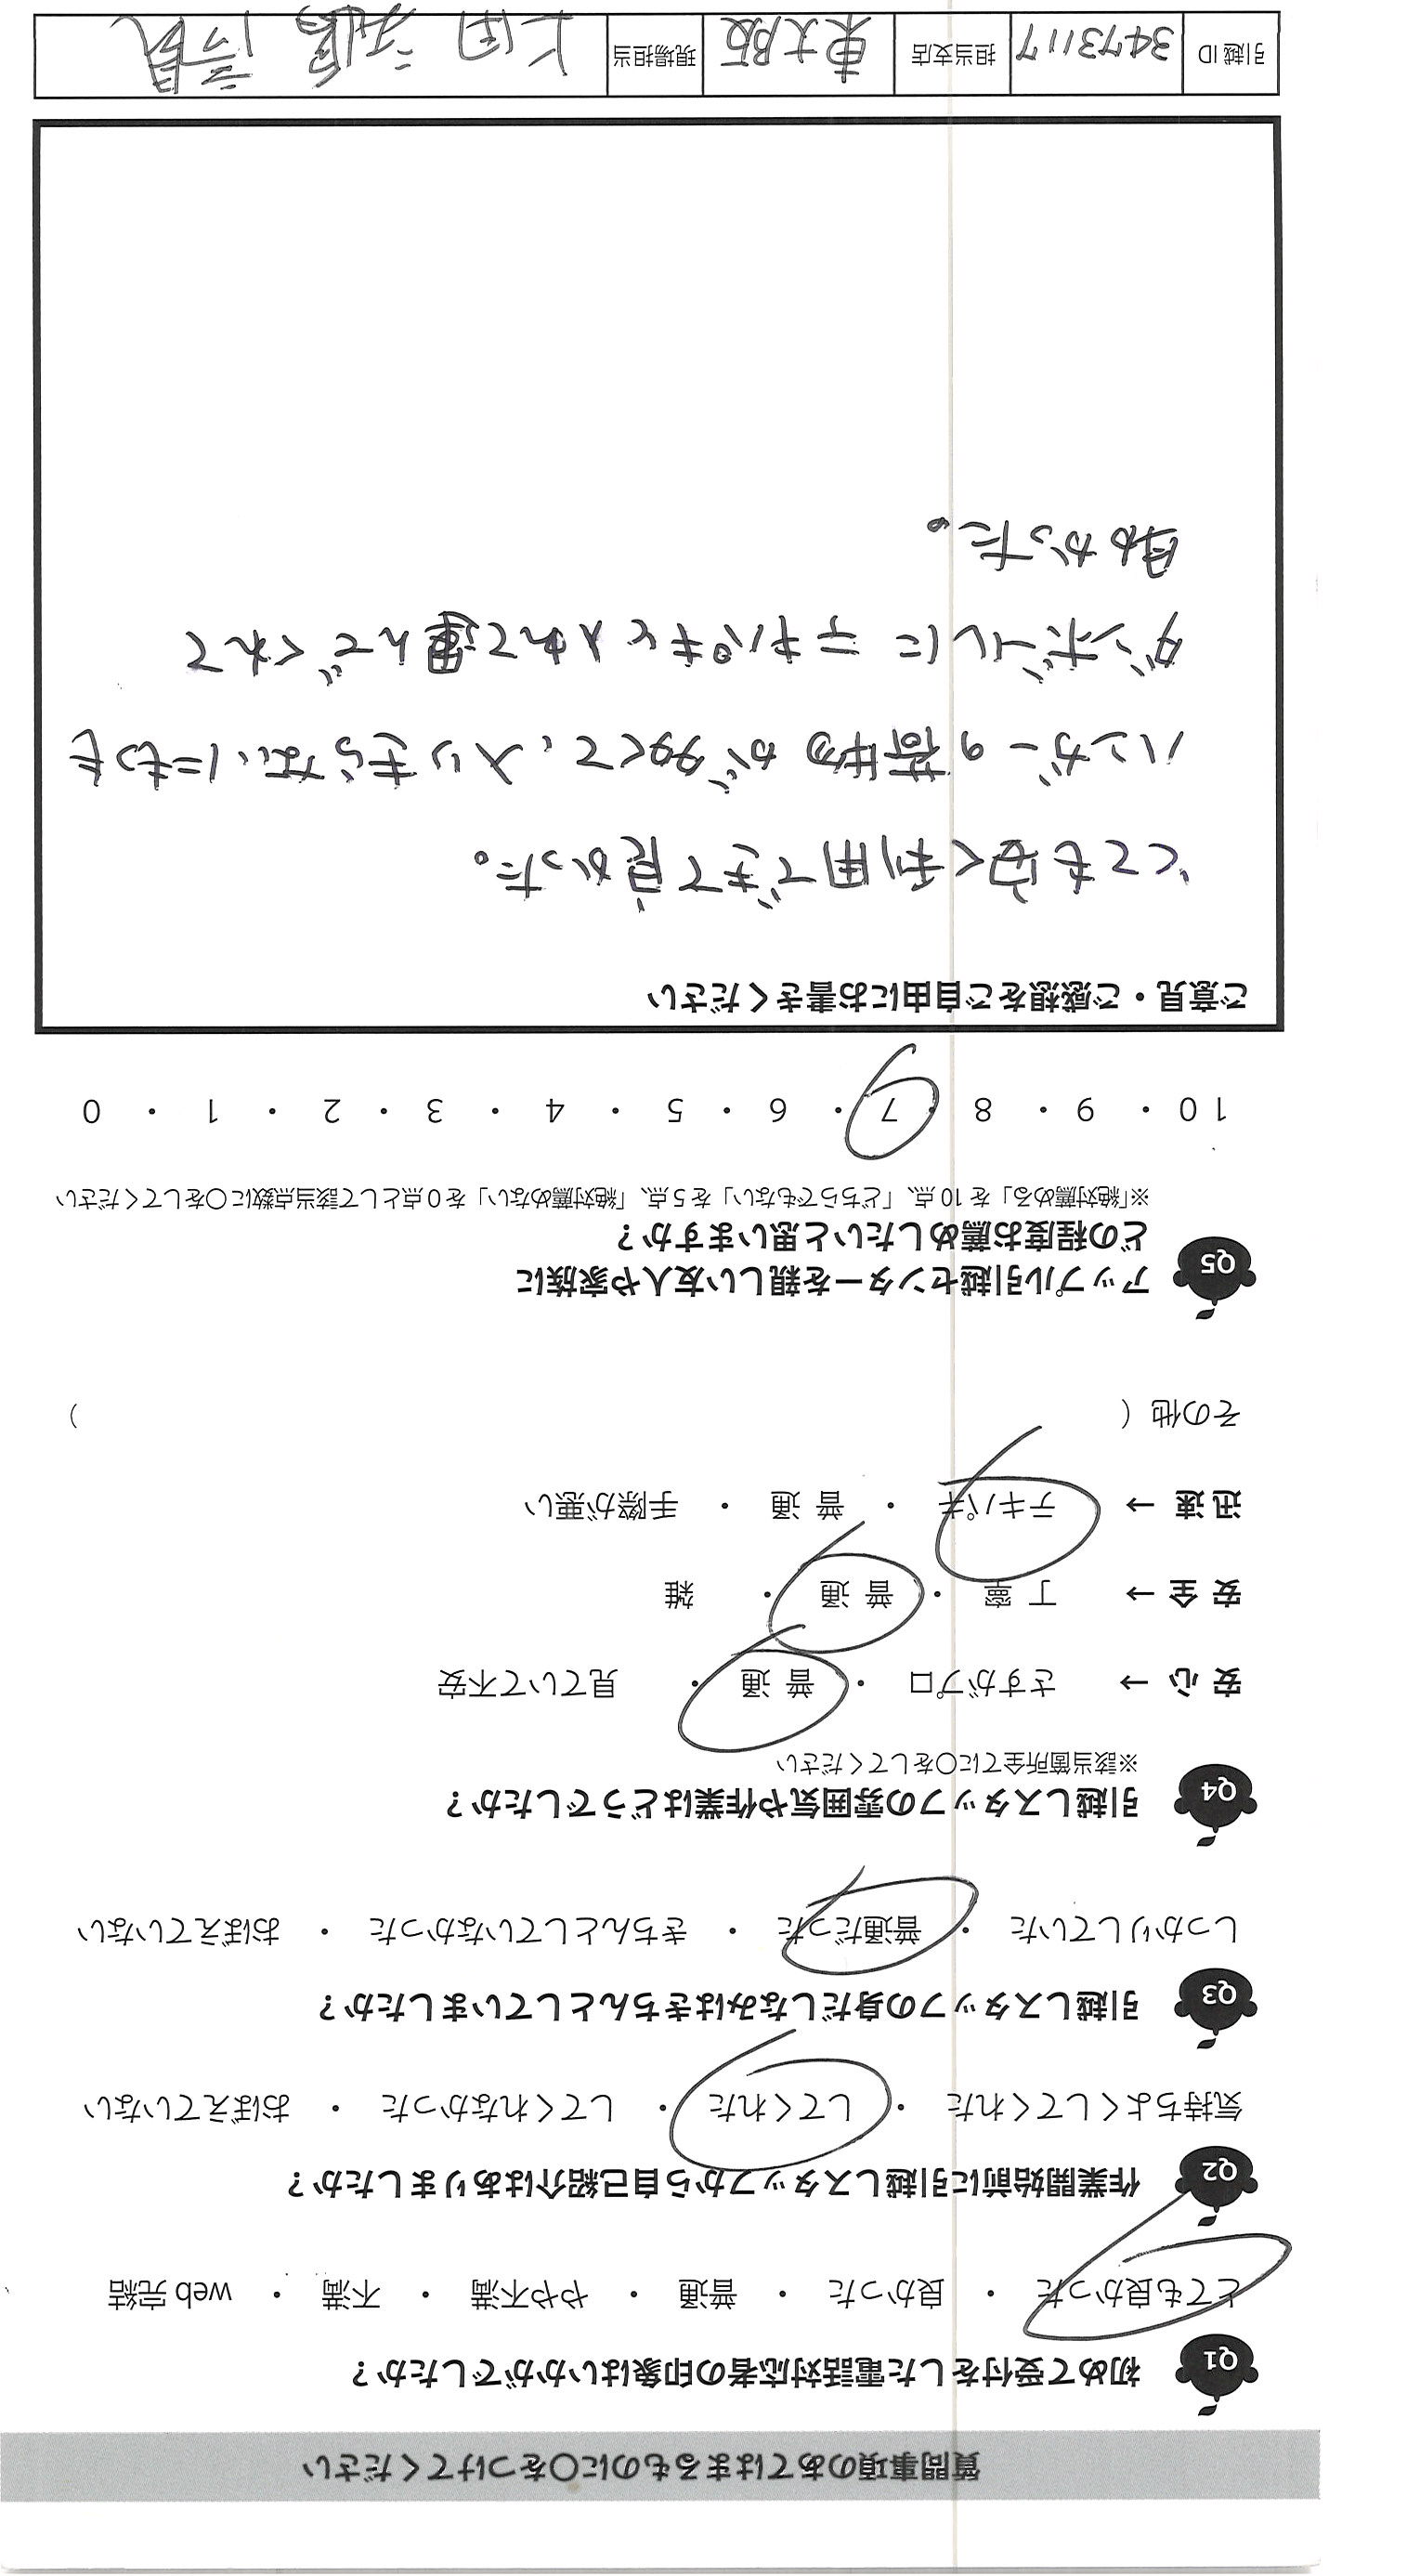 質問事項のあてはまるものに○をつけてください
Q1 初めて受付をした電話対応者の印象はいかがでしたか？
とても良かった ・ 良かった ・ 普通 ・ やや不満 ・ 不満 ・ web 完結
Q2 作業開始前に引越しスタッフから自己紹介はありましたか？
気持ちよくしてくれた ・ してくれた ・ してくれなかった ・ おぼえていない
Q3 引越しスタッフの身だしなみはきちんとしていましたか？
しっかりしていた ・ 普通だった ・ きちんとしていなかった ・ おぼえていない
Q4 引越しスタッフの雰囲気や作業はどうでしたか？
※該当箇所全てに○をしてください
安 心 → さすがプロ ・ 普 通 ・ 見ていて不安
安 全 → 丁 寧 ・ 普 通 ・ 雑
迅 速 → テキパキ ・ 普 通 ・ 手際が悪い
その他（ ）
Q5 アップル引越センターを親しい友人や家族に
どの程度お薦めしたいと思いますか？
※「絶対薦める」を 10 点、「どちらでもない」を 5 点、「絶対薦めない」を 0 点として該当点数に○をしてください
10 ・ 9 ・ 8 ・ 7 ・ 6 ・ 5 ・ 4 ・ 3 ・ 2 ・ 1 ・ 0
ご意見・ご感想をご自由にお書きください
とても安く利用できて良かった。
ハンガーの荷物が多くて、入りきらないにもつも
ダンボールにテキパキと入れて運んでくれて
助かった。
引越 ID 3473117 担当支店 東大阪 現場担当 上田